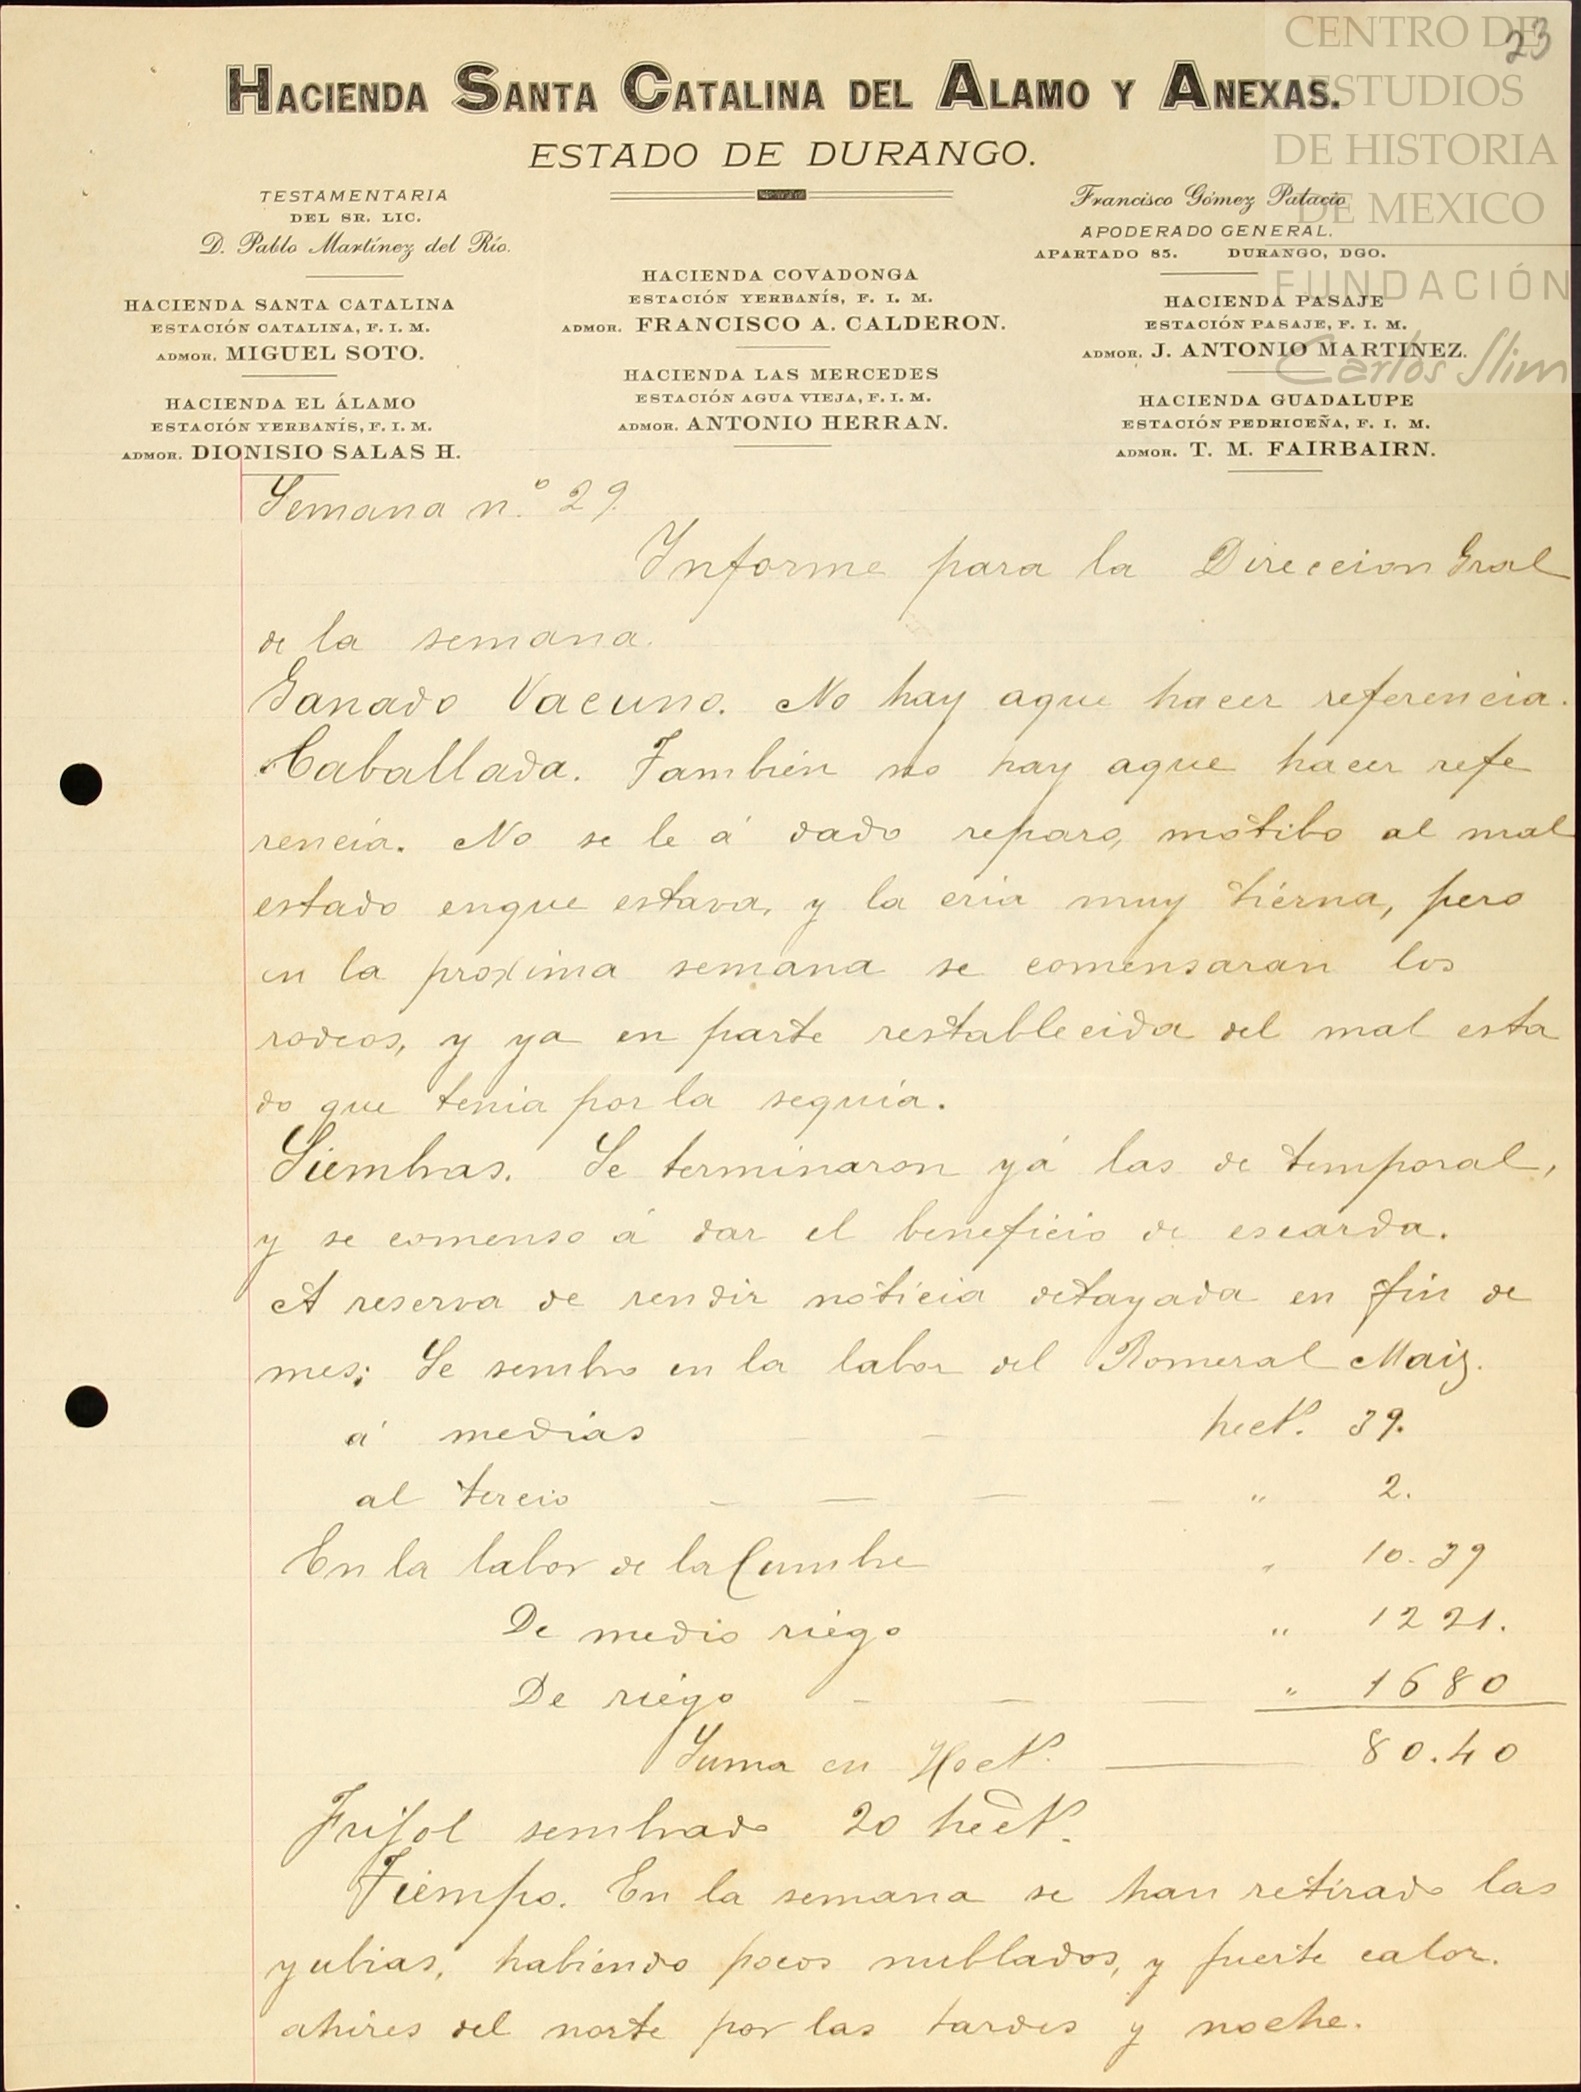 23
CENTRO DE
ESTUDIOS
DE HISTORIA
DE MEXICO
FUNDACIÓN
Carlos Slim
HACIENDA SANTA CATALINA DEL ALAMO Y ANEXAS.
ESTADO DE DURANGO.
TESTAMENTARIA
DEL SR. LIC.
D. Pablo Martínez del Río.
HACIENDA SANTA CATALINA
ESTACIÓN CATALINA, F. I. M.
ADMOR. MIGUEL SOTO.
HACIENDA EL ÁLAMO
ESTACIÓN YERBANÍS, F. I. M.
ADMOR. DIONISIO SALAS H.
HACIENDA COVADONGA
ESTACIÓN YERBANÍS, F. I. M.
ADMOR. FRANCISCO A. CALDERON.
HACIENDA LAS MERCEDES
ESTACIÓN AGUA VIEJA, F. I. M.
ADMOR. ANTONIO HERRAN.
Francisco Gómez Palacio
APODERADO GENERAL.
APARTADO 85. DURANGO, DGO.
HACIENDA PASAJE
ESTACIÓN PASAJE, F. I. M.
ADMOR. J. ANTONIO MARTINEZ.
HACIENDA GUADALUPE
ESTACIÓN PEDRICEÑA, F. I. M.
ADMOR. T. M. FAIRBAIRN.
Semana n.º 29.
Informe para la Direccion Gral
de la semana.
Ganado Vacuno. No hay aque hacer referencia.
Caballada. Tambien no hay aque hacer refe
rencia. No se le á dado reparo, motibo al mal
estado enque estava, y la cria muy tierna, pero
en la proxima semana se comensaran los
rodeos, y ya en parte restablecida del mal esta
do que tenia por la sequia.
Siembras. Se terminaron yá las de temporal,
y se comenso á dar el beneficio de escarda.
A reserva de rendir noticia detayada en fin de
mes; Se sembro en la labor del Romeral Maiz.
á medias — — hects. 39.
al tercio — — — — " 2.
En la labor de la Cumbre " 10.39
De medio riego " 12 21.
De riego — — — " 16 80
Suma en Hects. — 80.40
Frijol sembrado 20 hects.
Tiempo. En la semana se han retirado las
yubias, habiendo pocos nublados, y fuerte calor.
ahires del norte por las tardes y noche.